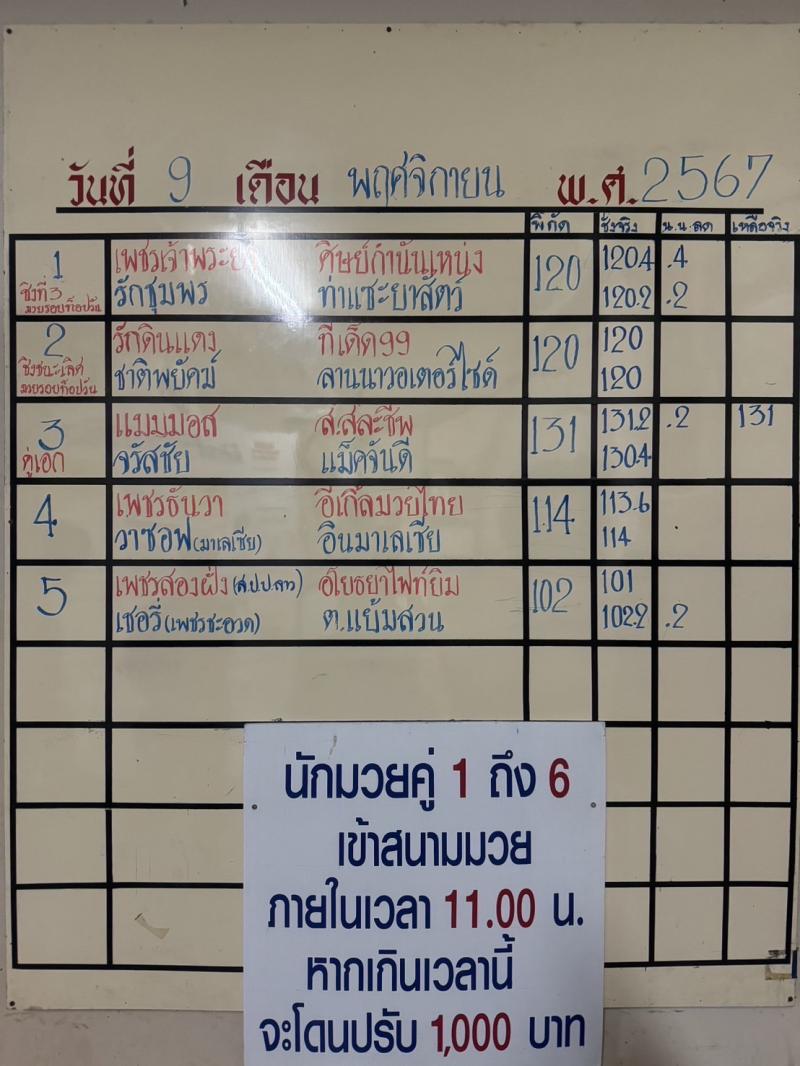 วันที่ 9 เดือน พฤศจิกายน พ.ศ. 2567
พิกัด ชั่งจริง น.น.ลด เหลือจริง
1 เพชรเจ้าพระยา ศิษย์กำนันเหน่ง 120 120.4 .4
ชิงที่3 มวยรอบท็อปวัน รักชุมพร ท่าแซะยาสัตว์ 120.2 .2
2 รักดินแดง ทีเด็ด99 120 120
ชิงชนะเลิศ มวยรอบท็อปวัน ชาติพยัคฆ์ ลานนาวอเตอร์ไซด์ 120
3 แมมมอส ส.สละชีพ 131 131.2 .2 131
คู่เอก จรัสชัย แม็คจันดี 130.4
4 เพชรธันวา อีเกิ้ลมวยไทย 114 113.6
วาซอฟ (มาเลเซีย) อินมาเลเซีย 114
5 เพชรสองฝั่ง (ส.ป.ป.ลาว) อโยธยาไฟท์ยิม 102 101
เชอรี่ (เพชรชะอวด) ต.แย้มสวน 102.2 .2
นักมวยคู่ 1 ถึง 6
เข้าสนามมวย
ภายในเวลา 11.00 น.
หากเกินเวลานี้
จะโดนปรับ 1,000 บาท